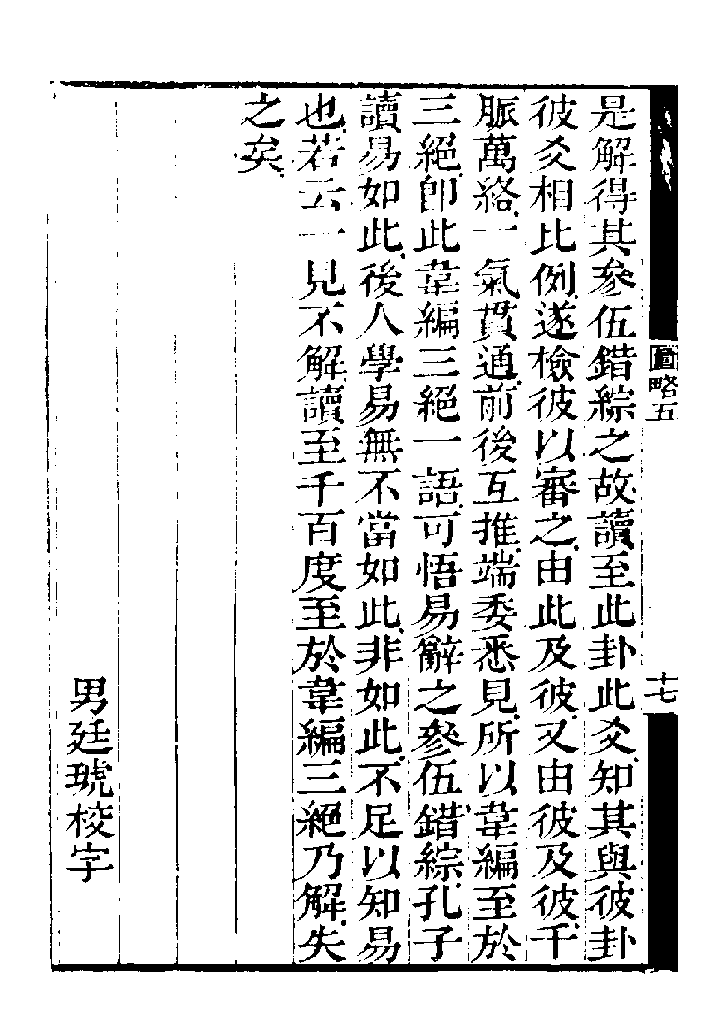 是解得其參伍錯綜之故讀至此卦此爻知其與彼卦
彼爻相比例遂檢彼以審之由此及彼又由彼及彼千
脈萬絡一氣貫通前後互推端委悉見所以韋編至於
三絕即此韋編三絕一語可悟易辭之參伍錯綜孔子
讀易如此後人學易無不當如此非如此不足以知易
也若云一見不解讀至千百度至於韋編三絕乃解失
之矣
男廷琥校字
圖略五
十七